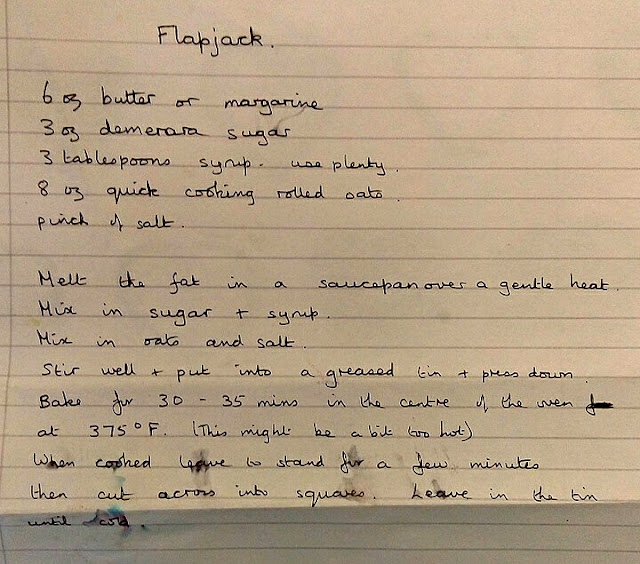 Flapjack.
6 oz butter or margarine
3 oz demerara sugar
3 tablespoons syrup. use plenty.
8 oz quick cooking rolled oats.
pinch of salt.
Melt the fat in a saucepan over a gentle heat.
Mix in sugar + syrup.
Mix in oats and salt.
Stir well + put into a greased tin + press down.
Bake for 30 - 35 mins in the centre of the oven
at 375°F. (This might be a bit too hot)
When cooked leave to stand for a few minutes
then cut across into squares. Leave in the tin
until cold.